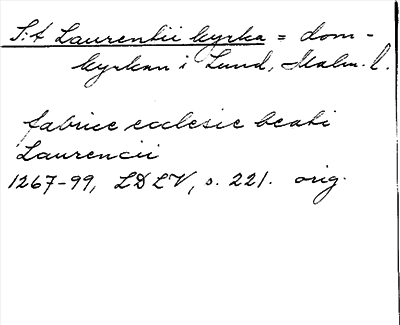 S:t Laurentii kyrka = dom-
kyrkan i Lund, Malm. l.
fabrice ecclesie beati
Laurencii
1267-99, LDLV, s. 221. orig.